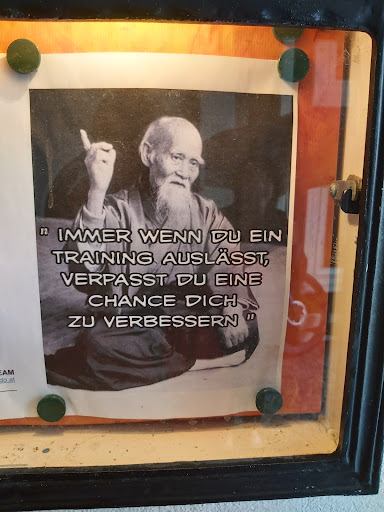 " IMMER WENN DU EIN
TRAINING AUSLÄSST,
VERPASST DU EINE
CHANCE DICH
ZU VERBESSERN "
EAM